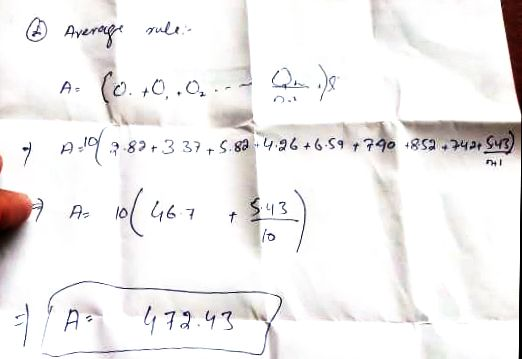 ② Average rule:-
A = (O. + O, + O₂ ... Oₙ / n+1) l
⇒ A = 10 (2.82 + 3 37 + 5.82 + 4.26 + 6.59 + 7.90 + 8.52 + 7.42 + 5.43 / n+1)
⇒ A = 10 (46.7 + 5.43 / 10)
⇒ A = 472.43